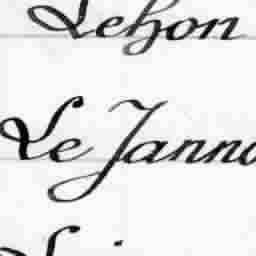 Lehon
Le Janno